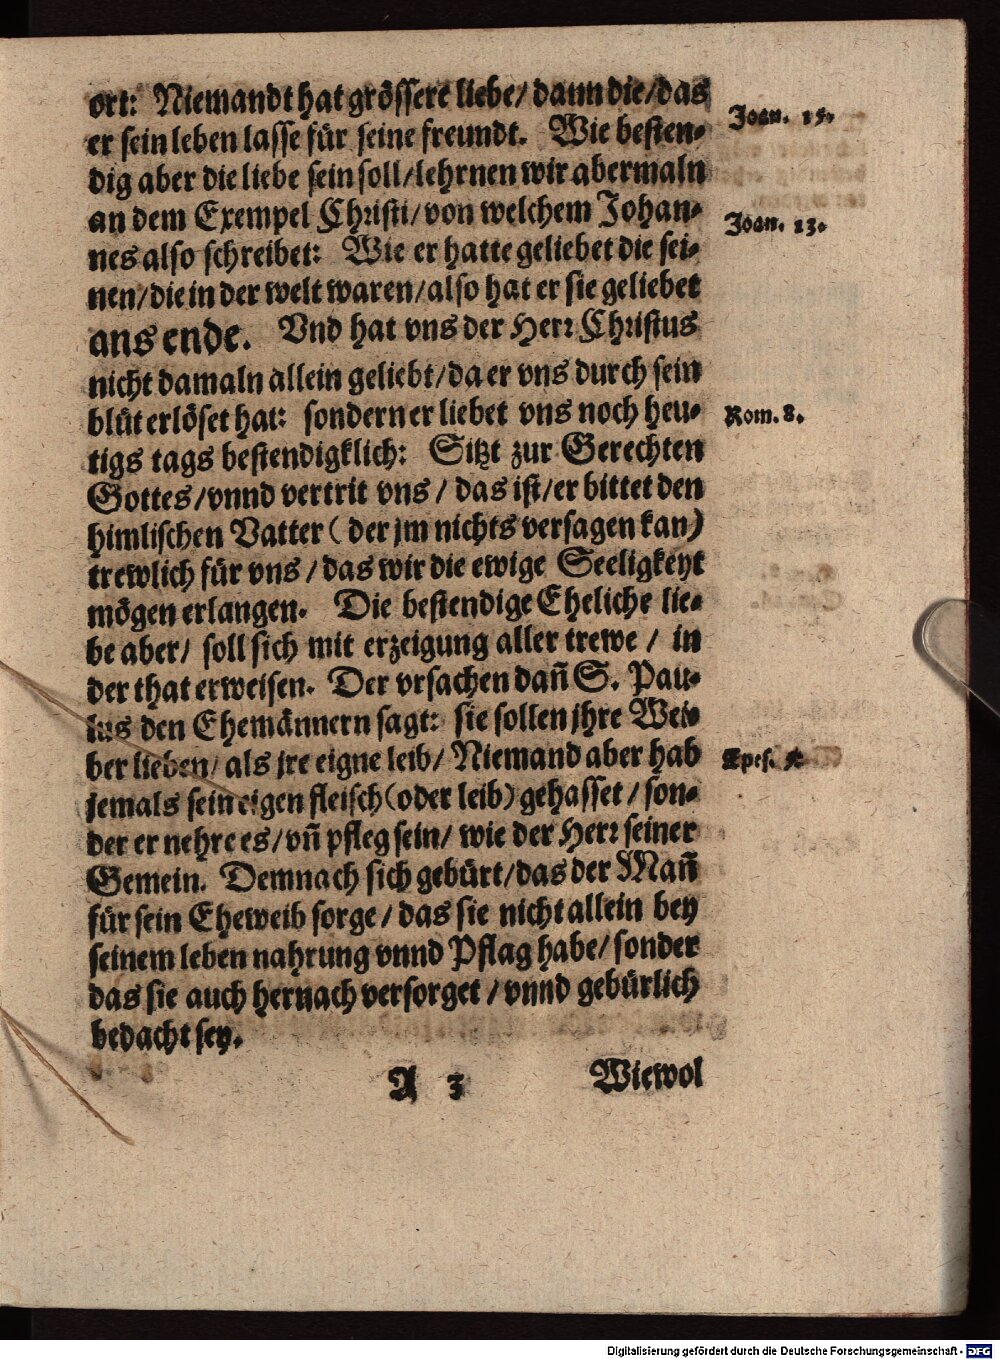 ort: Niemandt hat grössere liebe/ dann die/das
er sein leben lasse für seine freundt. Wie besten-
dig aber die liebe sein soll/lehrnen wir abermaln
an dem Exempel Christi/von welchem Johan-
nes also schreibet: Wie er hatte geliebet die sei-
nen/die in der welt waren/also hat er sie geliebet
ans ende. Vnd hat vns der Herr Christus
nicht damaln allein geliebt/da er vns durch sein
blüt erlöset hat: sondern er liebet vns noch heu-
tigs tags bestendigklich: Sitzt zur Gerechten
Gottes/vnnd vertrit vns/ das ist/er bittet den
himlischen Vatter (der jm nichts versagen kan)
trewlich für vns/das wir die ewige Seeligkeyt
mögen erlangen. Die bestendige Eheliche lie-
be aber/ soll sich mit erzeigung aller trewe/ in
der that erweisen. Der vrsachen dañ S. Pau-
lus den Ehemännern sagt: sie sollen jhre Wei-
ber lieben/ als jre eigne leib/ Niemand aber hab
jemals sein eigen fleisch (oder leib) gehasset/ son-
der er nehre es/vñ pfleg sein/ wie der Herr seiner
Gemein. Demnach sich gebürt/das der Mañ
für sein Eheweib sorge/ das sie nicht allein bey
seinem leben nahrung vnnd Pflag habe/ sonder
das sie auch hernach versorget/vnnd gebürlich
bedacht sey.
A 3 Wiewol
Joan. 15.
Joan. 13.
Rom. 8.
Ephes. 5.
Digitalisierung gefördert durch die Deutsche Forschungsgemeinschaft - DFG